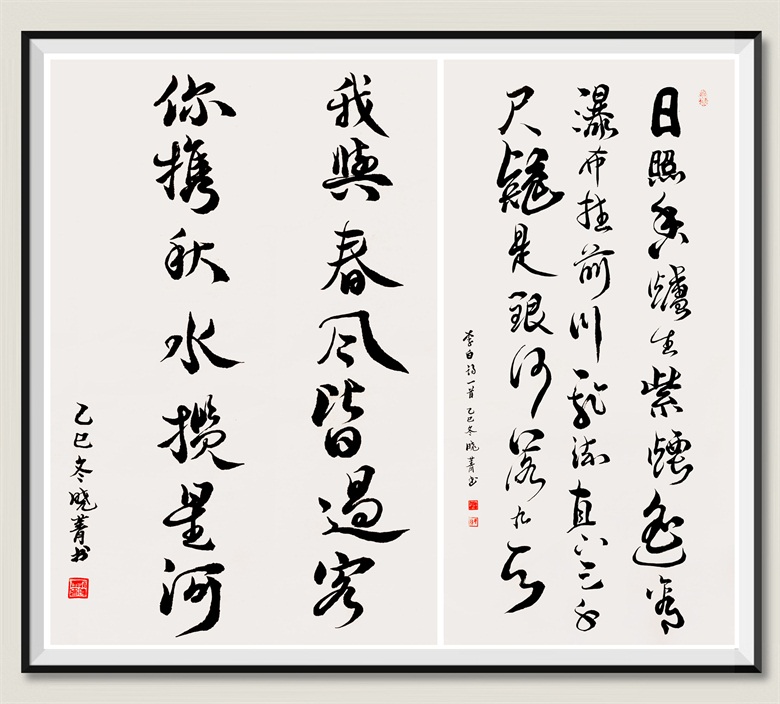 日照香爐生紫煙遙看
瀑布挂前川飛流直下三千
尺疑是銀河落九天
李白诗一首 乙巳冬晓菁书
我與春风皆過客
你携秋水揽星河
乙巳冬晓菁书